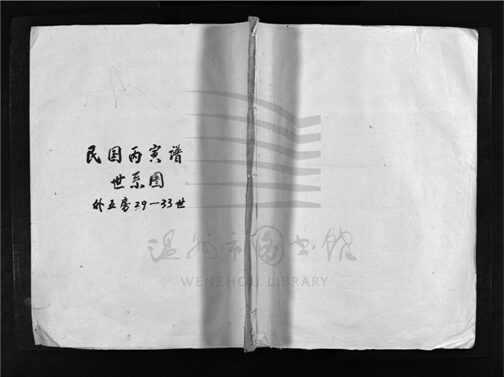 民国丙寅谱
世系图
外五房29—33世
温州市图书馆
WENZHOU LIBRARY